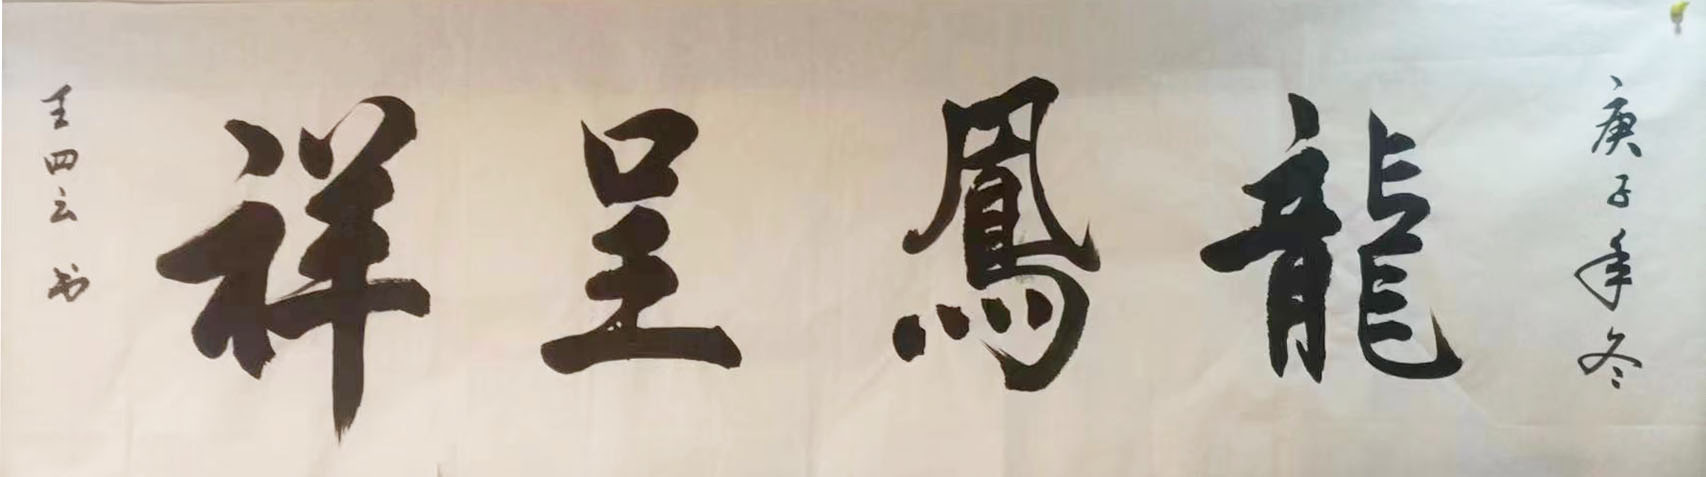 庚子年冬
龍鳳呈祥
王四云书